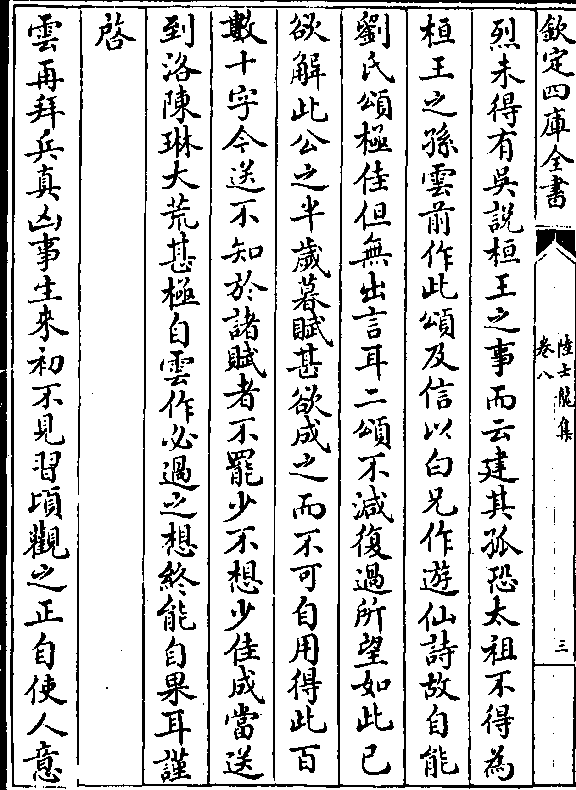 欽定四庫全書
陸士龍集
卷八
三
烈未得有吳說桓王之事而云建其孤恐太祖不得為
桓王之孫雲前作此頌及信以白兄作遊仙詩故自能
劉氏頌極佳但無出言耳二頌不減復過所望如此已
欲解此公之半歲暮賦甚欲成之而不可自用得此百
數十字今送不知於諸賦者不罷少不想少佳成當送
到洛陳琳大荒甚極自雲作必過之想終能自果耳謹
啓
雲再拜兵真凶事生來初不見習頃觀之正自使人意